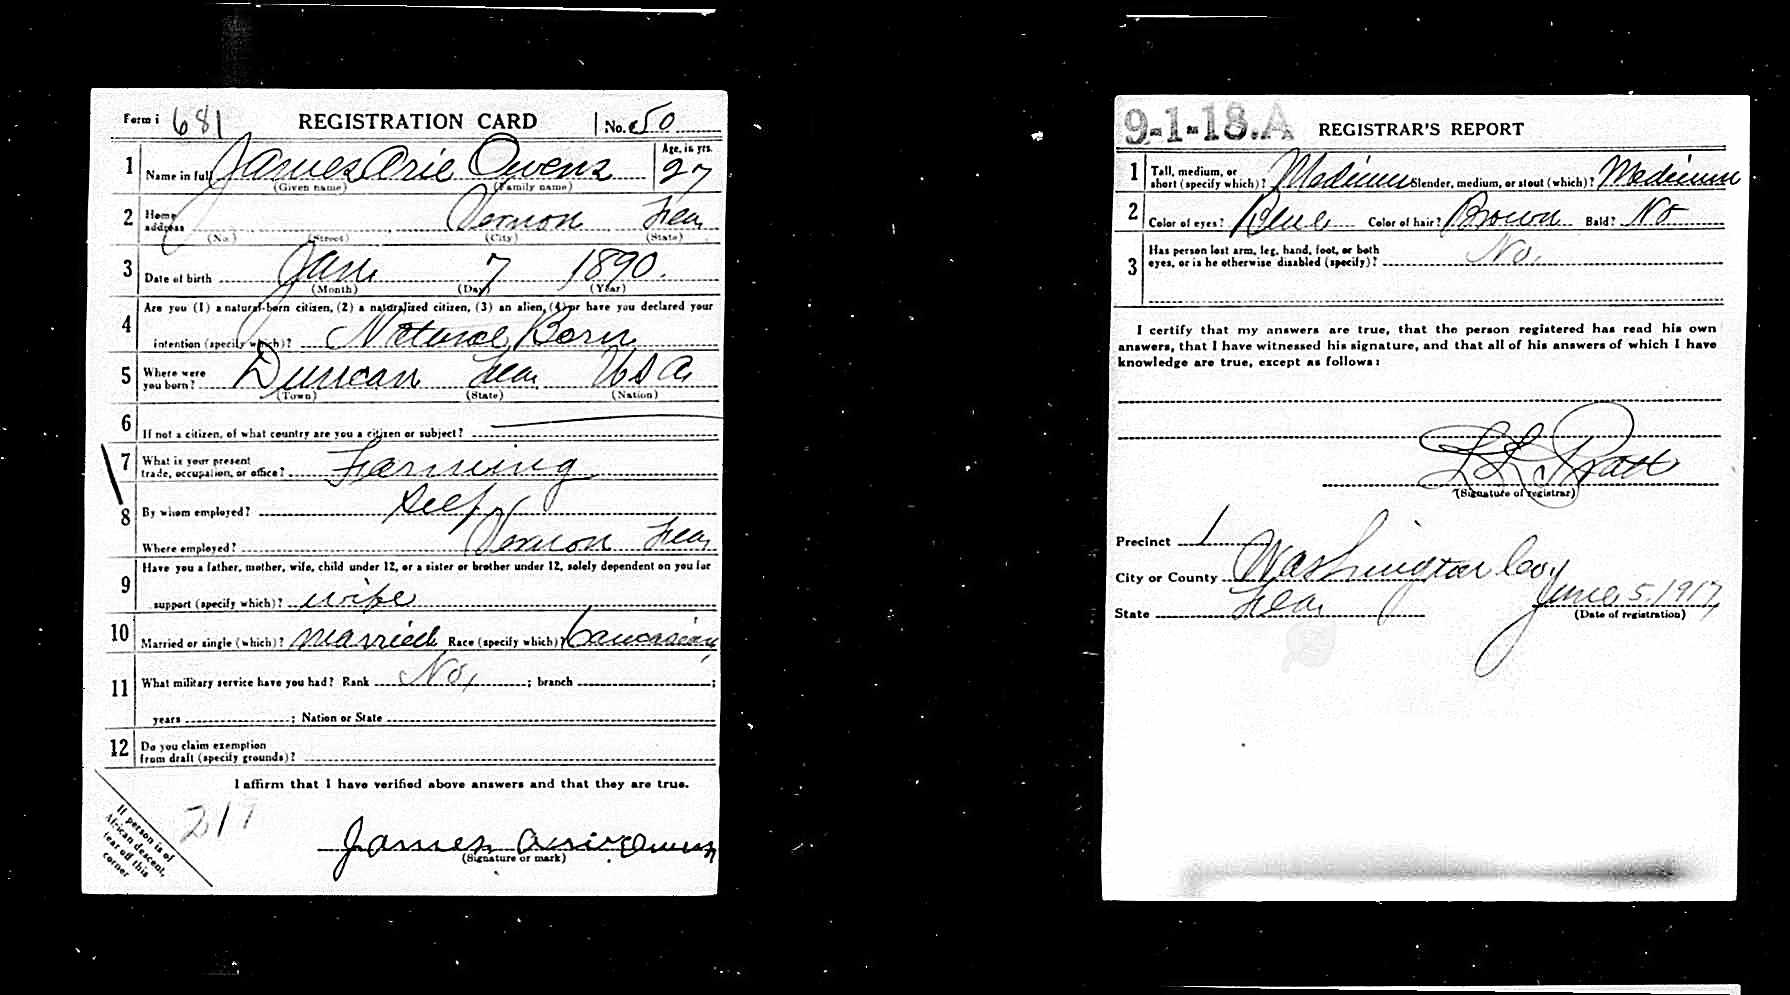 Form 1 681 REGISTRATION CARD No. 50
1 Name in full James Arie Owens Age, in yrs. 27
(Given name) (Family name)
2 Home address Vernon Fla
(No.) (Street) (City) (State)
3 Date of birth Jan 7 1890.
(Month) (Day) (Year)
4 Are you (1) a natural-born citizen, (2) a naturalized citizen, (3) an alien, (4) or have you declared your
intention (specify which)? Natural Born
5 Where were you born? Duncan Fla. USA
(Town) (State) (Nation)
6 If not a citizen, of what country are you a citizen or subject?
7 What is your present
trade, occupation, or office? Farming
8 By whom employed? Self
Where employed? Vernon Fla
9 Have you a father, mother, wife, child under 12, or a sister or brother under 12, solely dependent on you for
support (specify which)? wife
10 Married or single (which)? married Race (specify which)? Caucasian
11 What military service have you had? Rank No, ; branch ;
years ; Nation or State
12 Do you claim exemption
from draft (specify grounds)?
I affirm that I have verified above answers and that they are true.
If person is of
African descent,
tear off this
corner
217
James Arie Owens
(Signature or mark)
9-1-18.A REGISTRAR'S REPORT
1 Tall, medium, or
short (specify which)? Medium Slender, medium, or stout (which)? Medium
2 Color of eyes? Blue Color of hair? Brown Bald? No
3 Has person lost arm, leg, hand, foot, or both
eyes, or is he otherwise disabled (specify)? No.
I certify that my answers are true, that the person registered has read his own
answers, that I have witnessed his signature, and that all of his answers of which I have
knowledge are true, except as follows:
L L Pratt
(Signature of registrar)
Precinct 1
City or County Washington Co.
State Fla June 5, 1917
(Date of registration)